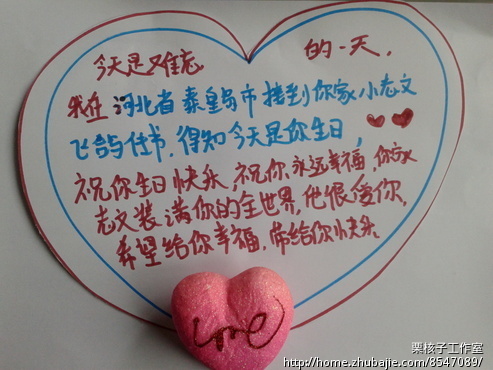 今天是又难忘 的一天，
我在河北省秦皇岛市接到你家小志文
飞鸽传书，得知今天是你生日，
祝你生日快乐，祝你永远幸福，你家
志文装满你的全世界，他很爱你，
希望给你幸福，带给你快乐
Love
栗核子工作室
http://home.zhubajie.com/8547089/